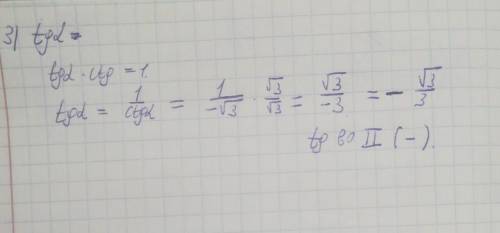 3) tgα =
tgα · ctg = 1.
tgα = 1/ctgα = 1/-√3 · √3/√3 = √3/-3 = - √3/3
tg во II (-).